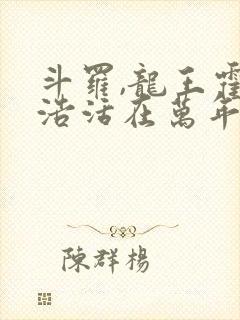 斗羅,龍王霍
浩活在萬年
陳群楊